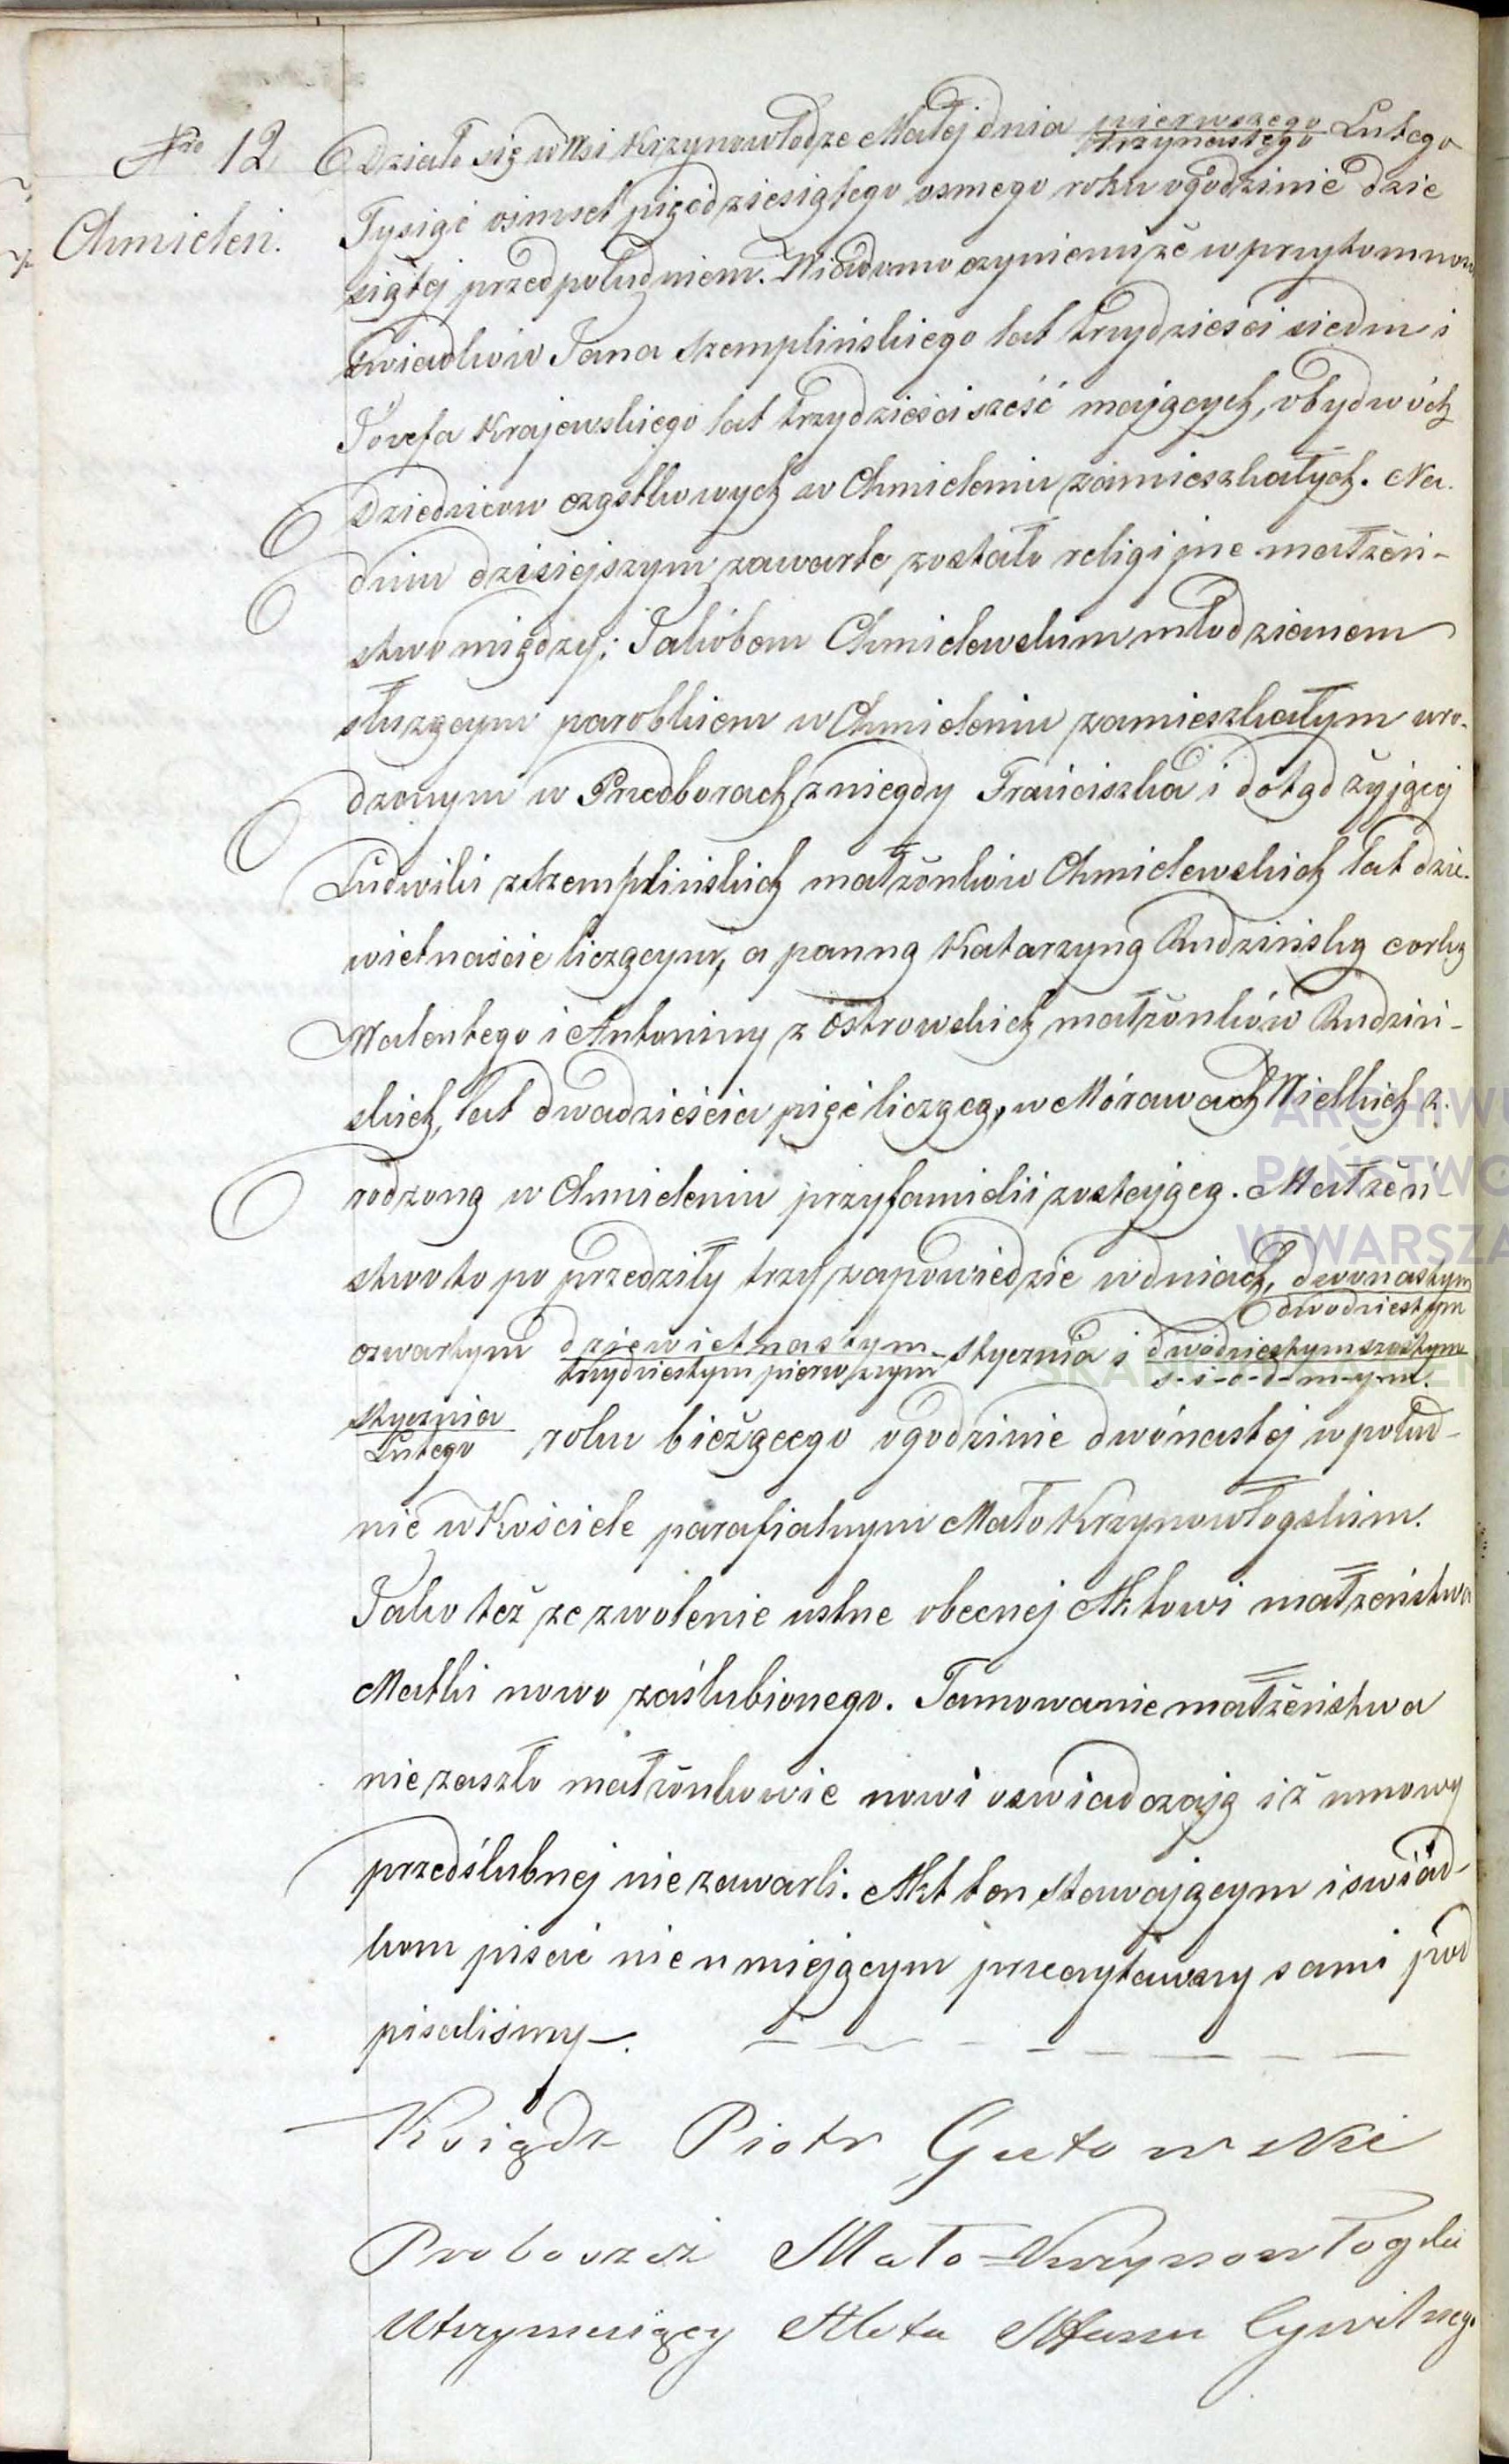 Nro 12
Chmieleń.
Działo się w Wsi Krzynowłodze Małej dnia pierwszego/trzynastego Lutego
Tysiąć ośmset pięćdziesiątego osmego roku o godzinie dzie
siątej przed południem. Wiadomo czyniemy że w przytomnoś
świadków Jana Szemplińskiego lat trzydzieści siedm i
Józefa Krajewskiego lat trzydzieści sześć mających, obydwóch
Dziedziców cząstkowych w Chmieleniu zamieszkałych. Na
dniu dzisiejszym zawarte zostało religijne małżeń-
stwo między: Jakóbem Chmielewskim młodzianem
służącym parobkiem w Chmieleniu zamieszkałym uro-
dzonym w Przedborach, z niegdy Franciszka i dotąd żyjącej
Ludwiki z Szemplińskich małżonków Chmielewskich lat dzie-
wietnaście liczącym, a panną Katarzyną Rudzińską corką
Walentego i Antoniny z Ostrowskich małżonków Rudziń-
skich, lat dwadzieścia pięć liczącą, w Mórawach Wielkich z.
rodzoną w Chmieleniu przy familii zostającą. Małżeń-
stwo to po przedziły trzy zapowiedzie w dniach, dwonastym/dwudziestym
czwartym dziewietnastym/trzydziestym pierwszym Stycznia i dwudziestym szostym/s-i-o-d-m-y-m.
Stycznia/Lutego roku bieżącego o godzinie dwónastej w połud-
nie w Kościele parafialnym Mało Krzynowłogskim.
Jako też ze zwolenie ustne obecnej Aktowi małżeństwa
Matki nowo zaślubionego. Tamowanie małżeństwa
nie zaszło małżonkowie nowi oswiadczają iż umowy
przedślubnej nie zawarli. Akt ten stawającym i swiad-
kom pisać nie umiejącym przeczytawszy sami pod
pisalismy.
Ksiądz Piotr Gutowski
Proboszcz Mało=Krzynowłogski
Utrzymuiący Akta Stanu Cywilnego
ARCHIWU
PAŃSTWO
W WARSZA